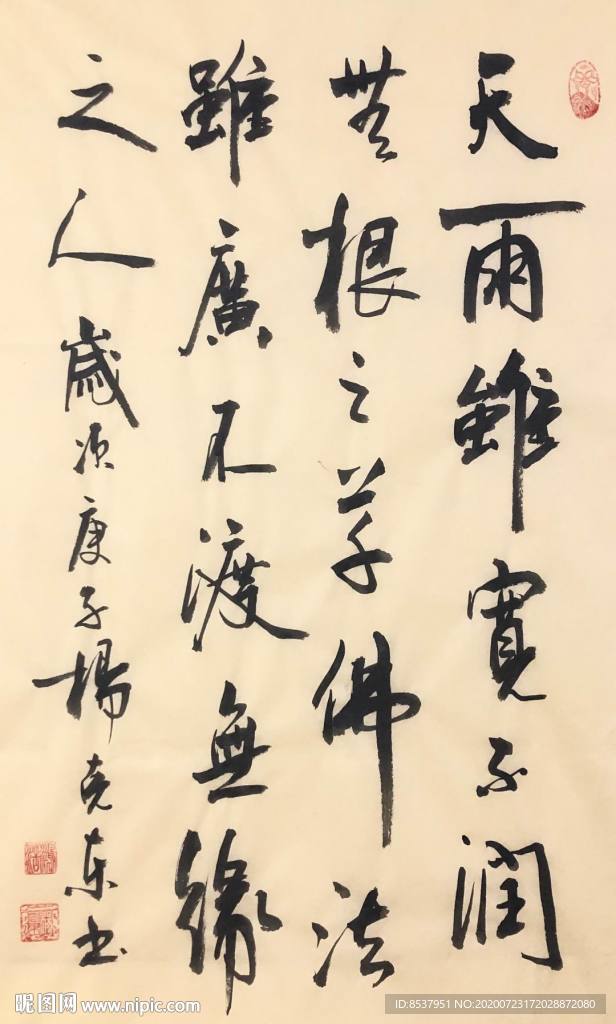 天雨雖寬不潤
無根之草佛法
雖廣不渡無緣
之人歲次庚子楊克東書
昵图网 www.nipic.com
ID:8537951 NO:20200723172028872080